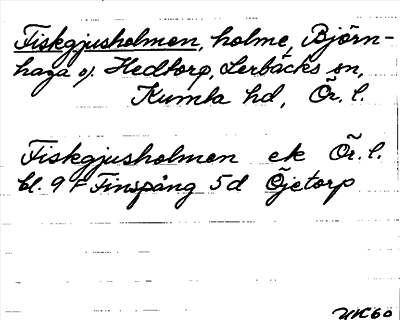 Fiskgjusholmen, holme, Björn-
haga o. Hedtorp, Lerbäcks sn,
Kumla hd, Ör. l.
Fiskgjusholmen ek Ör. l.
bl. 9 - Finspång 5d Öjetorp